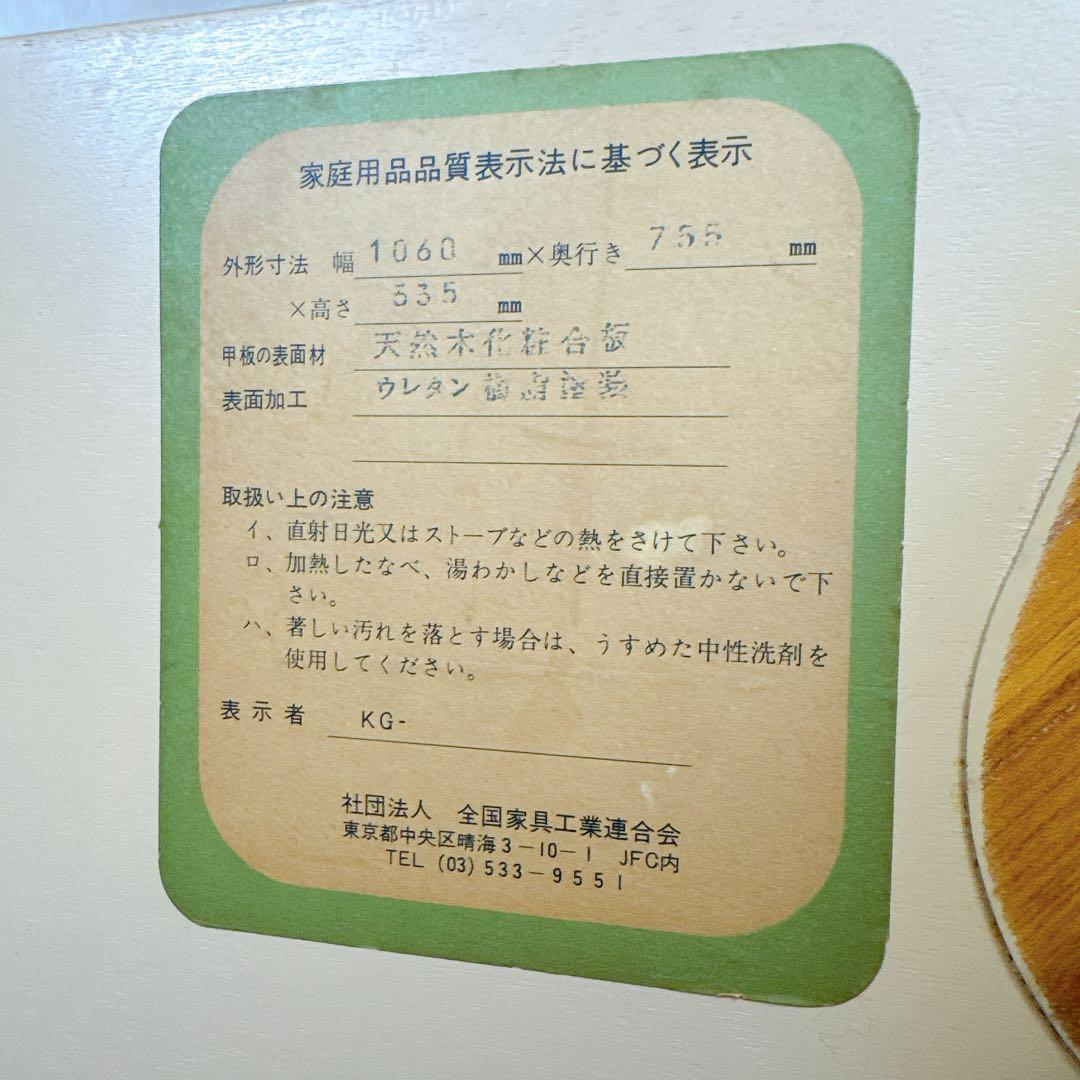 家庭用品品質表示法に基づく表示
外形寸法 幅 1060 mm×奥行き 755 mm
×高さ 335 mm
甲板の表面材 天然木化粧合板
表面加工 ウレタン樹脂塗装
取扱い上の注意
イ、直射日光又はストーブなどの熱をさけて下さい。
ロ、加熱したなべ、湯わかしなどを直接置かないで下
さい。
ハ、著しい汚れを落とす場合は、うすめた中性洗剤を
使用してください。
表示者 KG-
社団法人 全国家具工業連合会
東京都中央区晴海3-10-1 JFC内
TEL (03) 533-9551